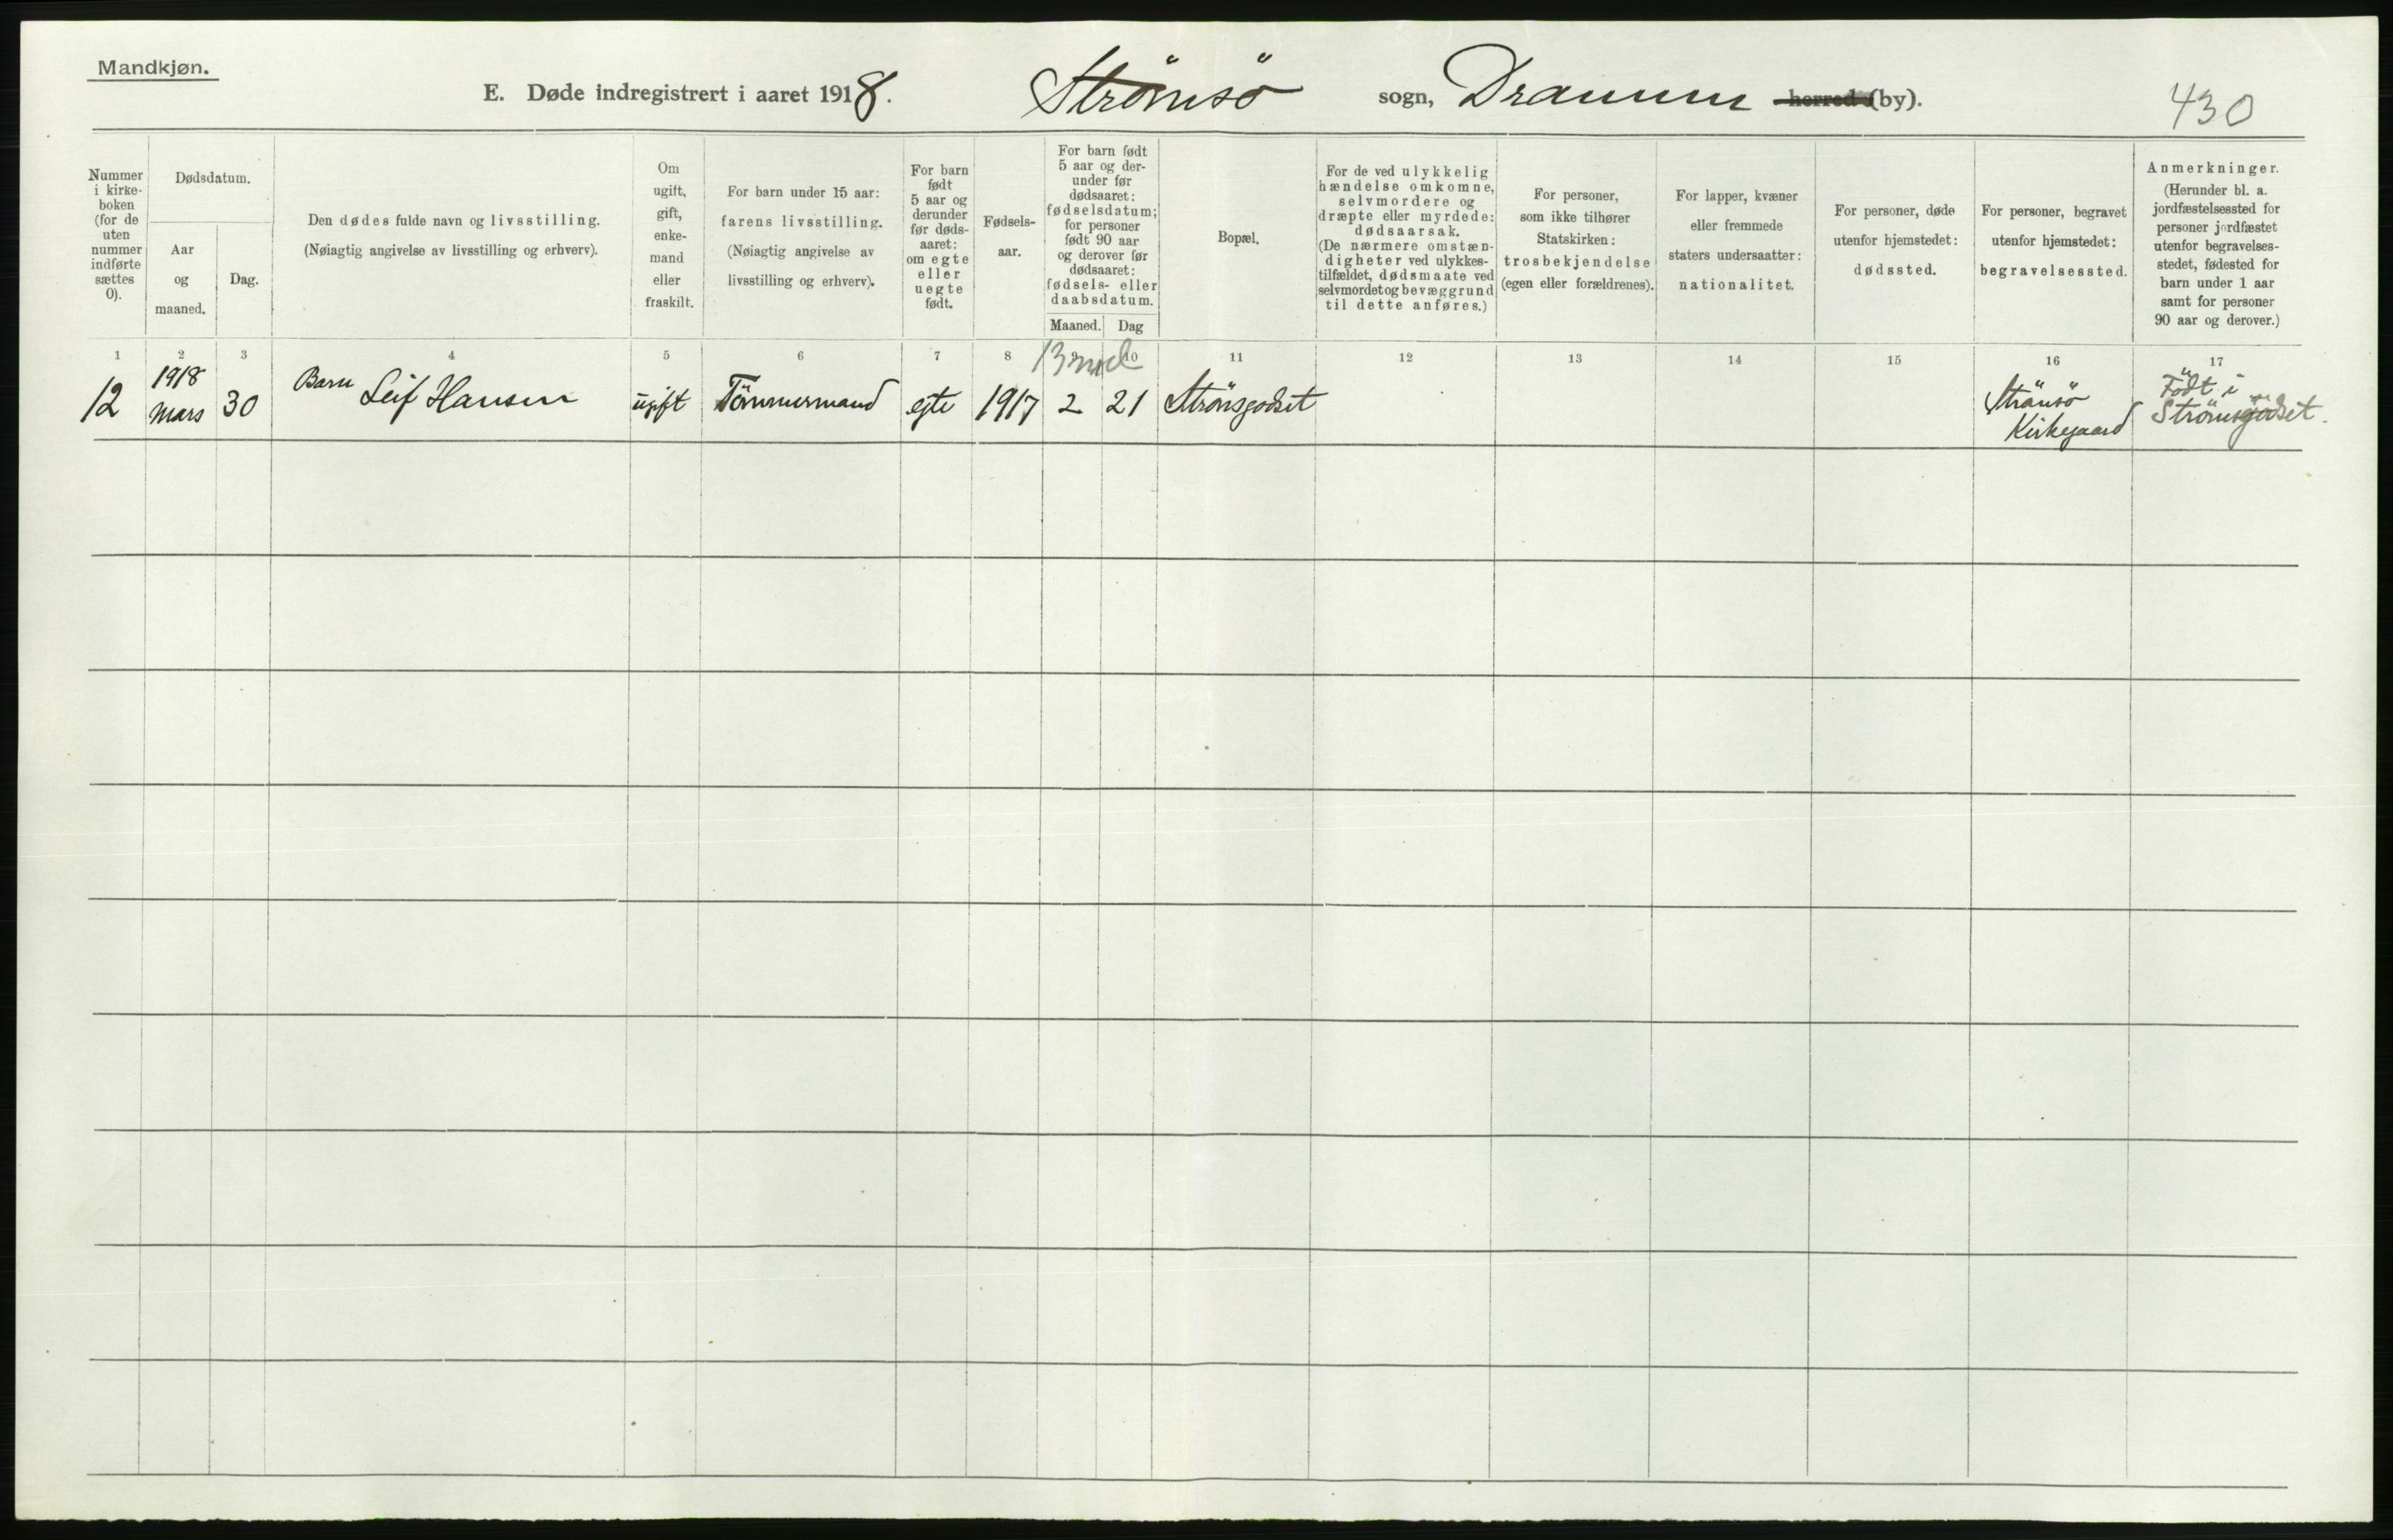 Mandkjøn.
E. Døde indregistrert i aaret 1918. Strömsö sogn, Drammen herred (by).
430
Nummer i kirke- boken (for de uten nummer indførte sættes 0).
Dødsdatum.
Aar og maaned.
Dag.
Den dødes fulde navn og livsstilling.
(Nøiagtig angivelse av livsstilling og erhverv).
Om ugift, gift, enke- mand eller fraskilt.
For barn under 15 aar:
farens livsstilling.
(Nøiagtig angivelse av
livsstilling og erhverv).
For barn født 5 aar og derunder før døds- aaret: om egte eller uegte født.
Fødsels- aar.
For barn født 5 aar og der- under før dødsaaret: fødselsdatum; for personer født 90 aar og derover før dødsaaret: fødsels- eller daabsdatum.
Maaned. Dag
Bopæl.
For de ved ulykkelig hændelse omkomne, selvmordere og dræpte eller myrdede: dødsaarsak. (De nærmere omstæn- digheter ved ulykkes- tilfældet, dødsmaate ved selvmordet og bevæggrund til dette anføres.)
For personer,
som ikke tilhører
Statskirken:
trosbekjendelse
(egen eller forældrenes).
For lapper, kvæner
eller fremmede
staters undersaatter:
nationalitet.
For personer, døde
utenfor hjemstedet:
dødssted.
For personer, begravet
utenfor hjemstedet:
begravelsessted.
Anmerkninger.
(Herunder bl. a.
jordfæstelsessted for
personer jordfæstet
utenfor begravelses-
stedet, fødested for
barn under 1 aar
samt for personer
90 aar og derover.)
1 2 3 4 5 6 7 8 9 10 11 12 13 14 15 16 17
13 md
12 1918 Mars 30 Barn Leif Hansen ugift Tömmermand egte 1917 2 21 Strömsgodset Strömsö Kirkegaard Födt i Strömsgodset.